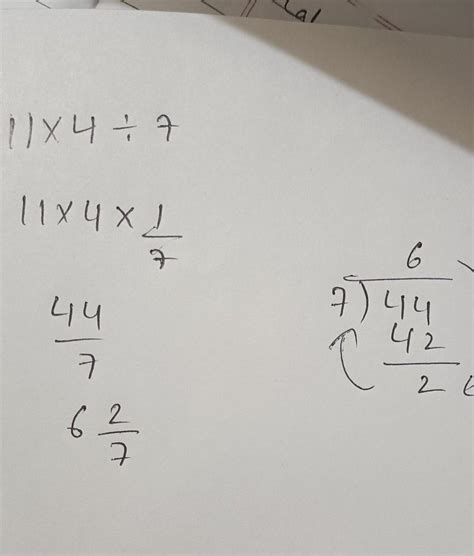 11×4÷7
11×4×1/7
44/7
6 2/7
6
7)44
42
2